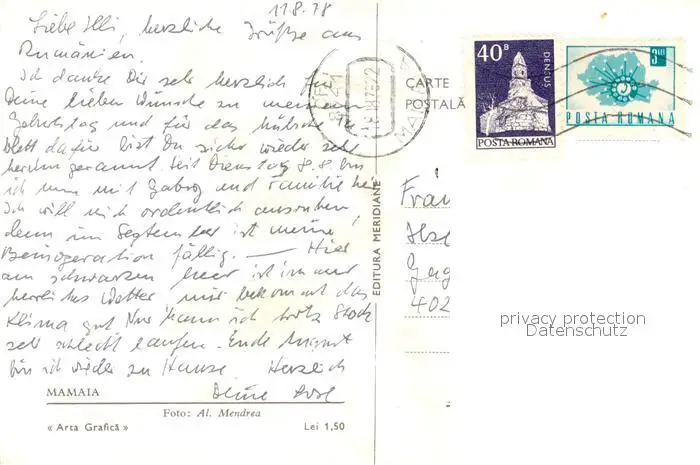 11.8.78
Liebe Illi, herzliche Grüße aus
Rumänien.
Ich danke Dir sehr herzlich für
Deine lieben Wünsche zu meinem
Geburtstag und für das hübsche
Blatt dafür bist Du sicher wieder sehr
herumgerannt. Seit Dienstag 8.8. bin
ich nun mit Gabog und Familie hier
Ich will mich ordentlich ausruhen,
denn im September ist meine
Beinoperation fällig. — Hier
am schwarzen Meer ist immer
herrliches Wetter mir bekommt das
Klima gut Nur kann ich trotz Stock
sehr schlecht laufen. Ende August
bin ich wieder zu Hause. Herzlich
Deine
MAMAIA
Foto: Al. Mendrea
« Arta Grafică »
Lei 1,50
EDITURA MERIDIANE
CARTE
POSTALĂ
40 B
DENSUS
POSTA ROMANA
POSTA ROMANA
Frau
Ilse
402
privacy protection
Datenschutz